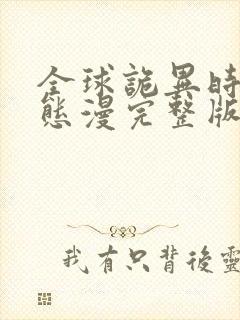 全球詭異時
態漫完整版
我有只背後靈